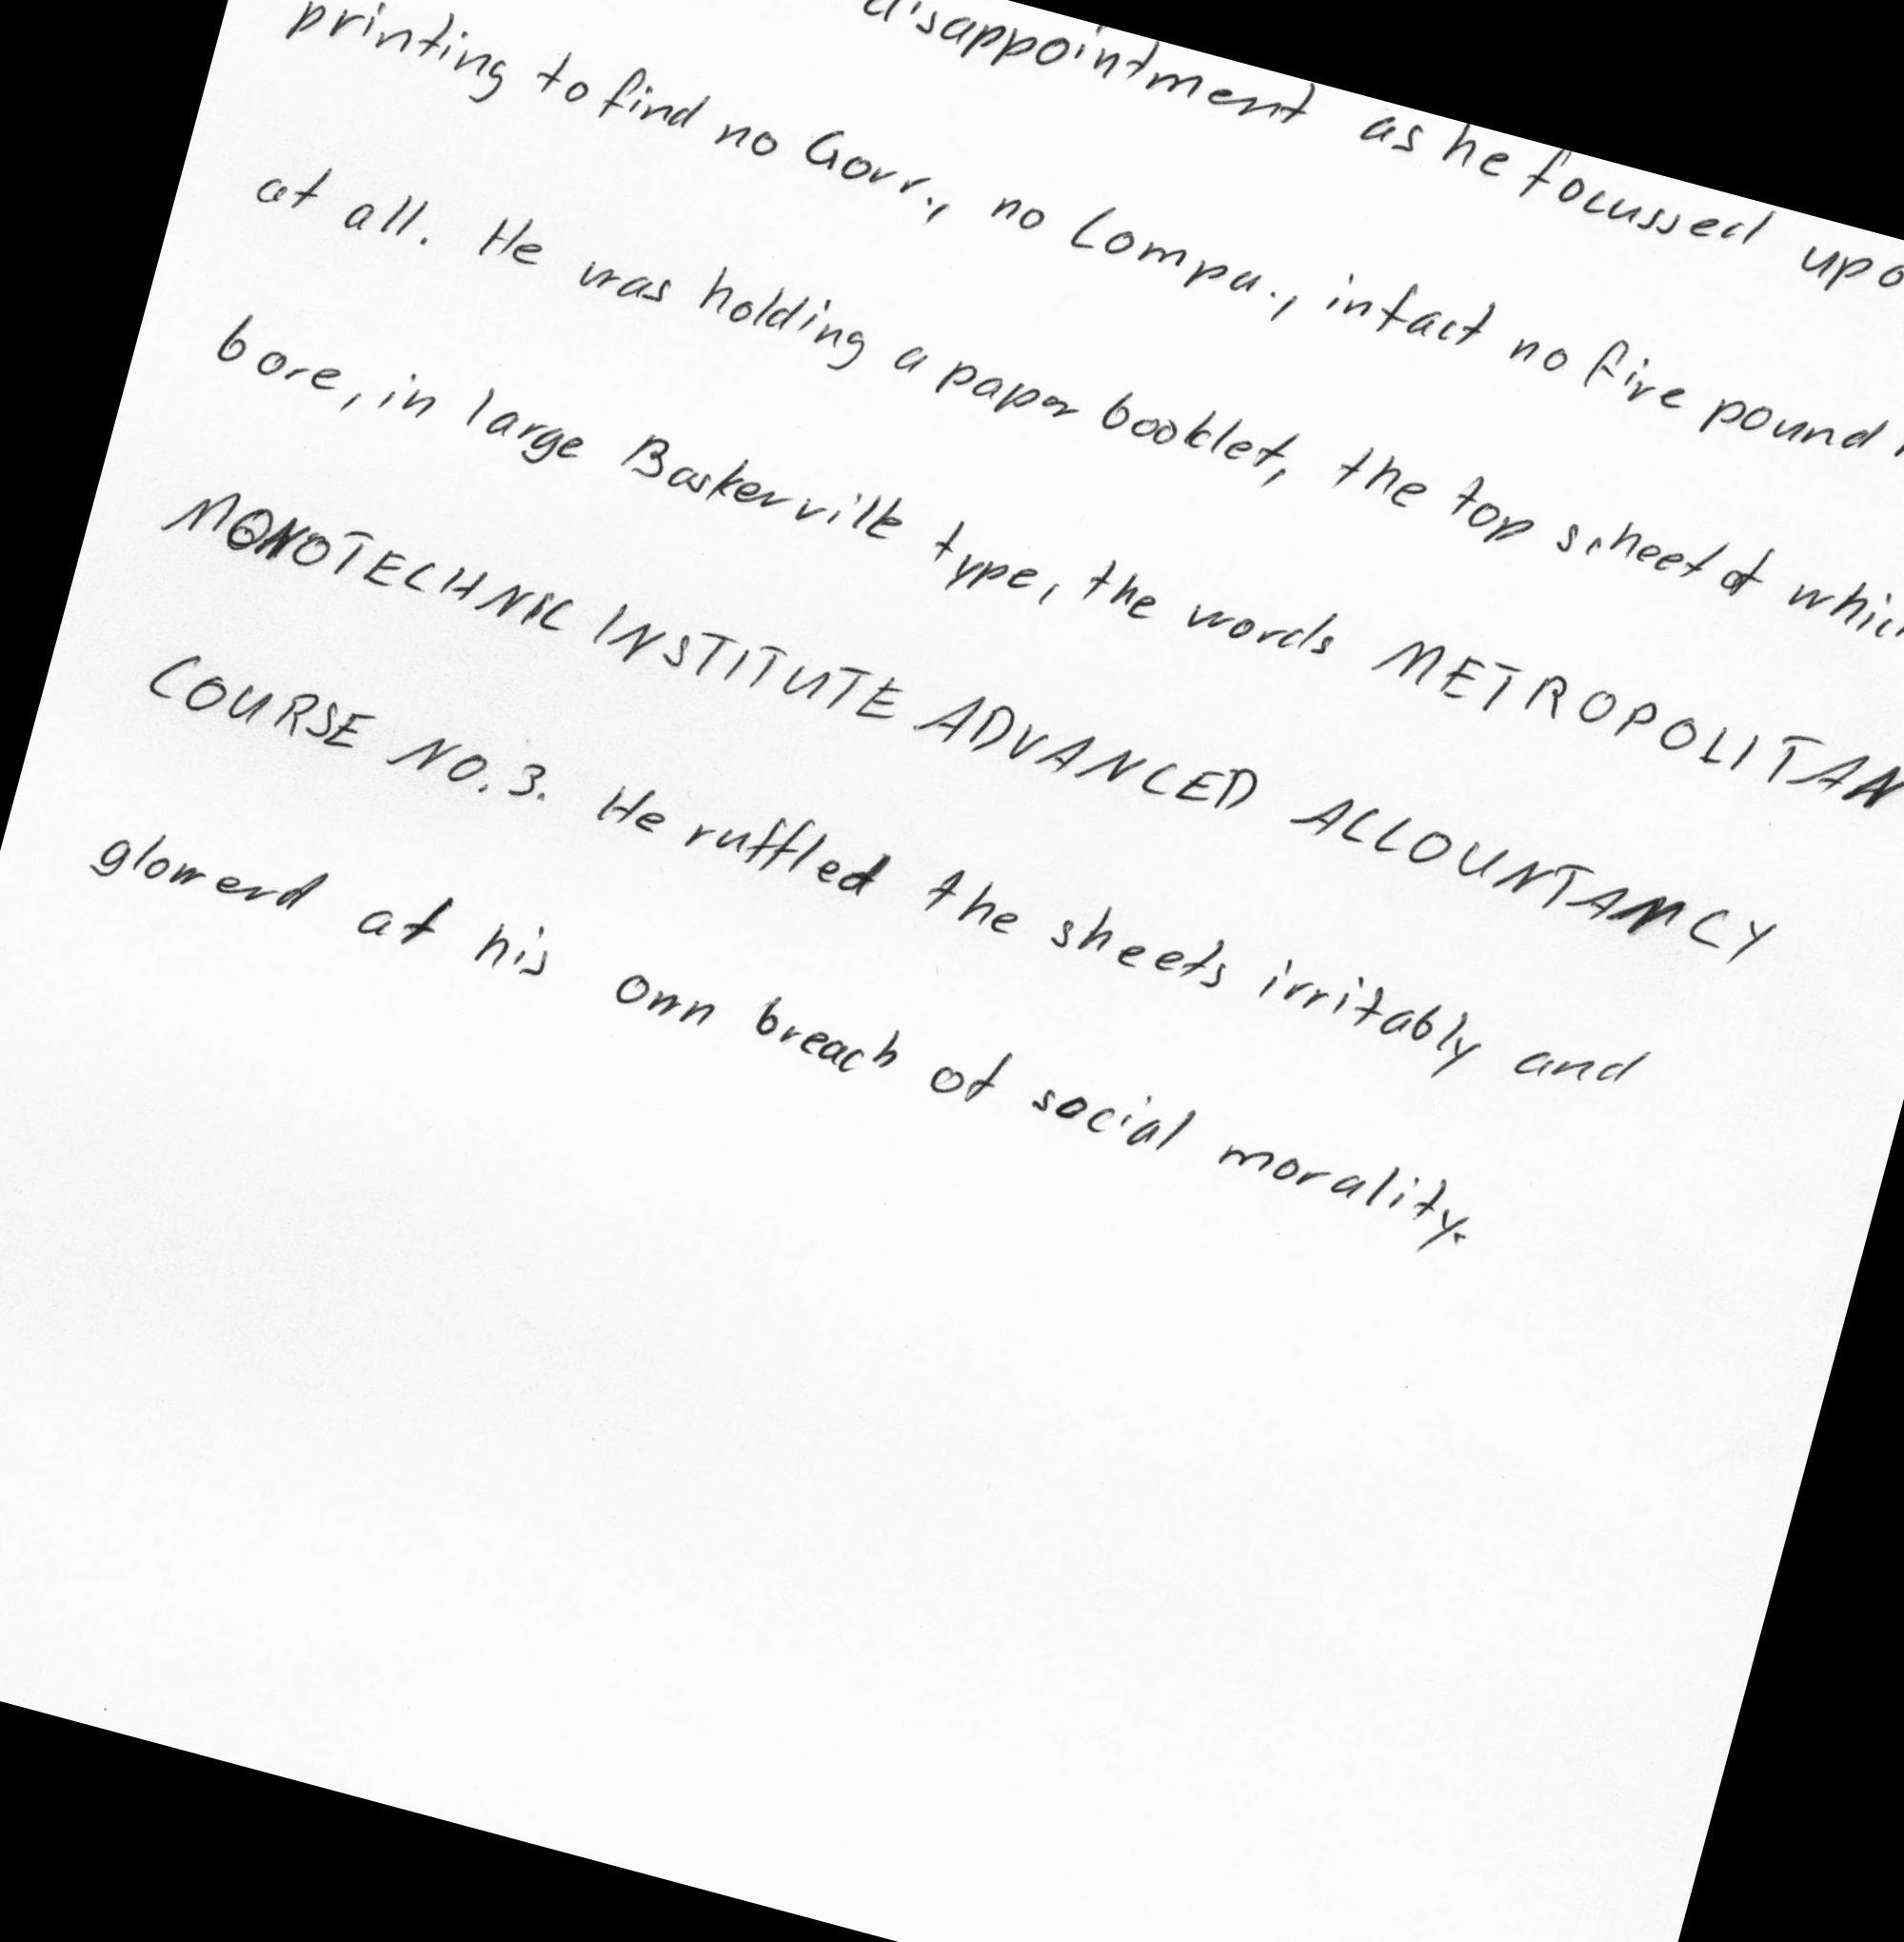 disappointment as he focussed
printing to find no Govr., no Compa., in fact no five pound
at all. He was holding a paper booklet, the top scheet of
bore, in large Baskerville type, the words METROPOLITAN
MONOTECHNIC INSTITUTE ADVANCED ACCOUNTANCY
COURSE NO. 3. He ruffled the sheets irritably and
glowerd at his own breach of social morality.